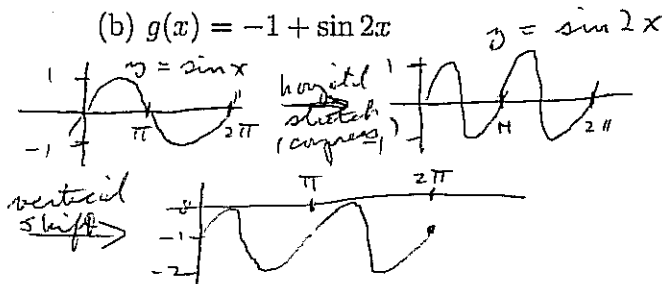 (b) g(x) = −1 + sin 2x
y = sin 2x
1
y = sin x
-1
π
2π
horizontal
stretch
(compress)
1
-1
π
2π
vertical
shift
π
2π
-1
-2